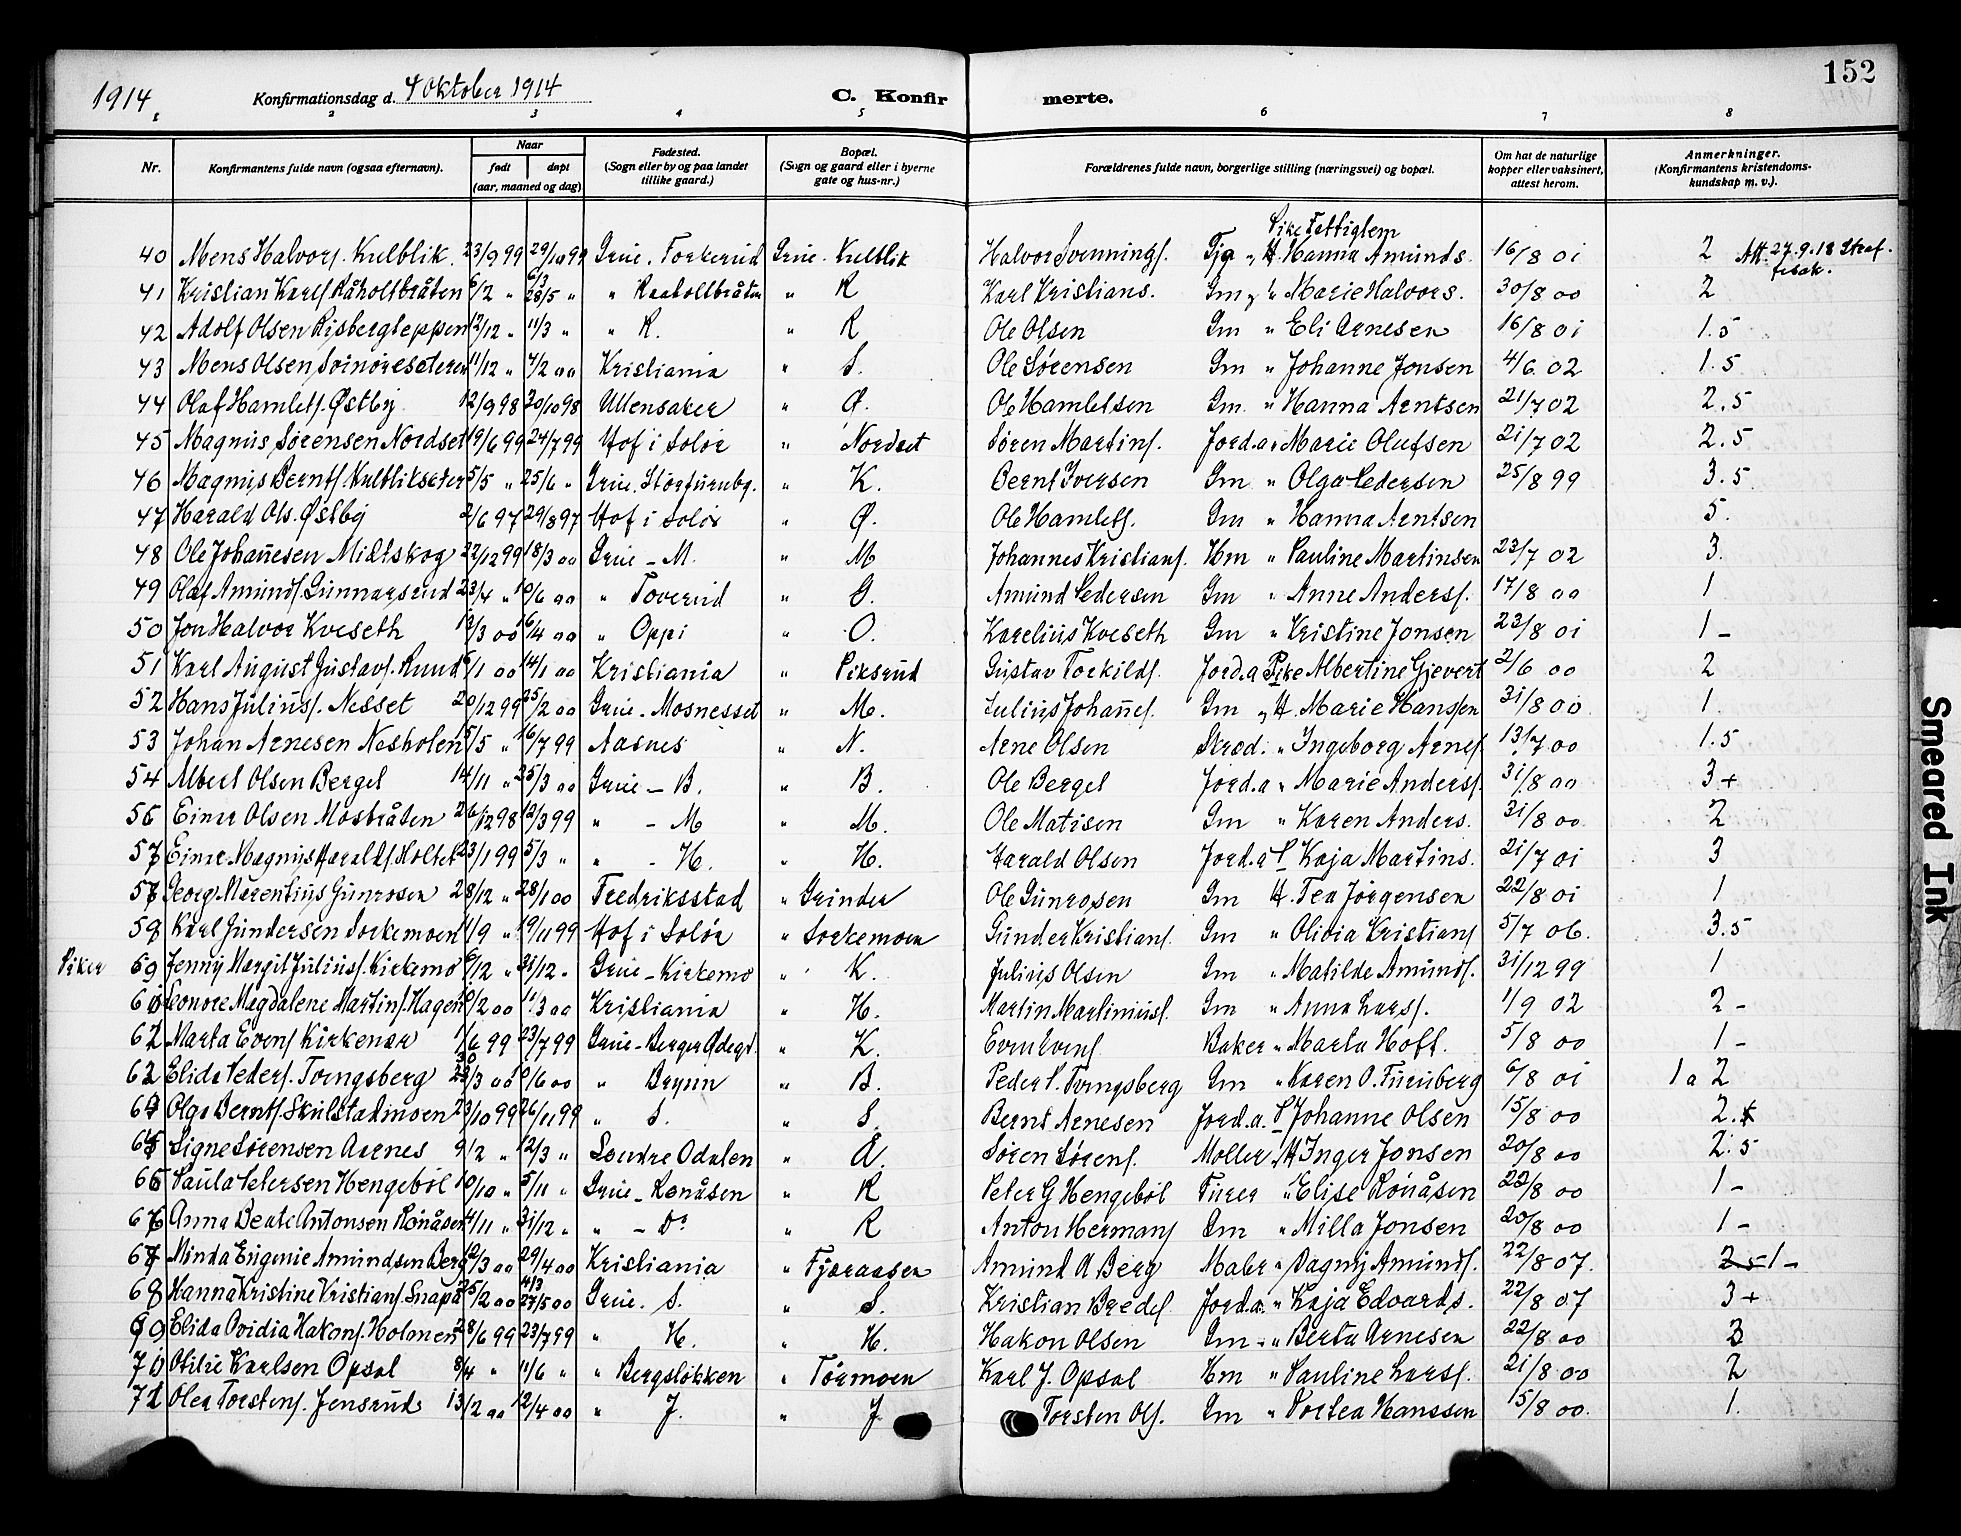 1914
Konfirmationsdag d. 4 Oktober 1914
C. Konfir merte.
152
2 3 4 5 6 7 8
Nr. Konfirmantens fulde navn (ogsaa efternavn). Naar født døpt (aar, maaned og dag) Fødested. (Sogn eller by og paa landet tillike gaard.) Bopæl. (Sogn og gaard eller i byerne gate og hus-nr.) Forældrenes fulde navn, borgerlige stilling (næringsvei) og bopæl. Om hat de naturlige kopper eller vaksinert, attest herom. Anmerkninger. (Konfirmantens kristendomskundskap m. v.).
Pike Fattiglem
40 Mens Halvors. Kulblik. 23/9 99 29/10 99 Grue. Torkerud Grue. Kulblik Halvor Svennings. Tjg. H. Hanna Amunds. 16/8 01 2 Att. 27.9.18 Straf.
fesak.
41 Kristian Karls Råholtbråten 6/2 " 28/5 " " Raaholtbråten " R Karl Kristians. Gm. " Marie Halvors. 30/8 00 2
42 Adolf Olsen Risbergleppen 12/12 " 11/3 " " R. " R Ole Olsen Gm " Eli Arnesen 16/8 01 1.5
43 Mens Olsen Svinøreseteren 11/12 " 4/2 00 Kristiania " S. Ole Sørensen Gm " Johanne Jonsen 4/6 02 1.5
44 Olaf Hamlets. Østby 12/9 98 20/10 98 Ullensaker " Ø. Ole Hamletsen Gm. " Hanna Arntsen 21/7 02 2.5
45 Magnus Sørensen Nordset 19/6 99 24/7 99 Hof i Solør " Nordset Søren Martins. Jord.a " Marie Olufsen 21/7 02 2.5
46 Magnus Bernts. Kulblikseter 5/5 " 25/6 " Grue. Storfurubg. " K. Bernt Iversen Gm " Olga Pedersen 25/8 99 3.5
47 Harald Ols. Østby 2/6 97 29/8 97 Hof i Solør " Ø. Ole Hamlets. Gm " Hanna Arntsen 5.
48 Ole Johañesen Midtskog 22/12 99 18/3 00 Grue - M. " M Johannes Kristians. Hm " Pauline Martinsen 23/7 02 3.
49 Olaf Amunds. Gunnarsrud 23/4 " 10/6 00 " Toverud " G. Amund Pedersen Gm " Anne Anders. 17/8 00 1
50 Jon Halvor Kveseth 13/3 00 16/4 00 " Oppi " O. Karelius Kveseth Gm " Kristine Jonsen 23/8 01 1 -
51 Karl August Gustavs. Ruud 6/1 00 14/1 00 Kristiania " Piksrud Gustav Torkilds. Jord.a Pike Albertine Gjevert 2/6 00 2
52 Hans Julius. Nesset 20/12 99 25/2 00 Grue - Mosnesset " M. Julius Johañes. Gm " H. Marie Hanssen 31/8 00 1.
53 Johan Arnesen Nesholen 15/5 " 16/7 99 Aasnes " N. Arne Olsen Skræd. " Ingeborg Arnes. 13/7 00 1.5
54 Albert Olsen Bergel 14/11 " 25/3 00 Grue - B. " B. Ole Bergel Jord.a " Marie Anders. 31/8 00 3+
55 Einar Olsen Mosbråten 26/12 98 12/3 99 " - M " M. Ole Matisen Gm " Karen Anders. 31/8 00 2
57 Einar Magnus Haralds. Moltet 23/1 99 5/3 " " - H. " H. Harald Olsen Jord.a P Kaja Martins. 21/7 01 3
57 Georg Marentius Gunrosen 28/12 " 28/1 00 Fredriksstad " Grinder Ole Gunrosen Gm H. Tea Jørgensen 22/8 01 1
59 Karl Gundersen Sorkemoen 11/9 " 19/11 99 Hof i Solør " Sorkemoen Gunder Kristians. Gm " Olidia Kristians 5/7 06. 3.5
Piker 69 Jenny Margit Julius. Kirkemo 6/12 " 31/12 " Grue - Kirkemo " K. Julius Olsen Gm " Matilde Amunds. 31/12 99 1
60 Leonore Magdalene Martins. Hagen 10/2 00 11/3 00 Kristiania " H. Martin Martinius. Gm " Anna Lars. 1/9 02 2 -
62 Marta Evens. Kirkenær 1/6 99 23/7 99 Grue - Berger Ødegd. " K. Even Evens. Baker " Marta Hoff. 5/8 00 1 -
62 Elida Peders. Tvingsberg 23/3 00 10/6 00 " Brynn " B. Peder P. Tvingsberg Gm " Karen O. Furuberg 6/8 01 1 a 2
64 Olga Bernts. Skulstadmoen 23/10 99 26/11 99 " S. " S. Bernt Arnesen Jord.a. P Johanne Olsen 15/8 00 2.
65 Signe Sørensen Aarnes 9/2 " 12/3 " Søndre Odalen " Å. Søren Sørens. Møller " H Inger Jonsen 20/8 00 2.5
66 Paula Petersen Hengebøl 10/10 " 5/11 " Grue - Rønåsen " R Peter G Hengebøl Furer " Elise Rønåsen 22/8 00 1 -
67 Anna Beate Antonsen Rønåsen 4/11 " 31/12 " " - Do " R Anton Hermans Gm " Milla Jonsen 20/8 00 1 -
67 Minda Eugenie Amundsen Berg 12/3 00 29/4 00 Kristiania " Fjæraasen Amund A Berg Maler " Dagny Amunds. 22/8 07. 2.5 1 -
68 Hanna Kristine Kristians. Snapa 25/2 00 27/5 00 Grue. S. " S. Kristian Bredes Jord.a. " Kaja Edvards. 22/8 07 3 +
69 Elida Ovidia Hakons. Holmen 28/6 99 23/7 99 " H. " H. Hakon Olsen Gm " Berta Arnesen 22/8 00 3
70 Otilie Karlsen Opsal 8/4 " 11/6 " " Bergsløkken " Tørmoen Karl J. Opsal Hm " Pauline Lars. 21/8 00 2
71 Olea Torstens. Jensrud 13/2 00 12/4 00 " J. " J. Torsten Ols. Gm " Dortea Hanssen 15/8 00. 1.
Smeared Ink